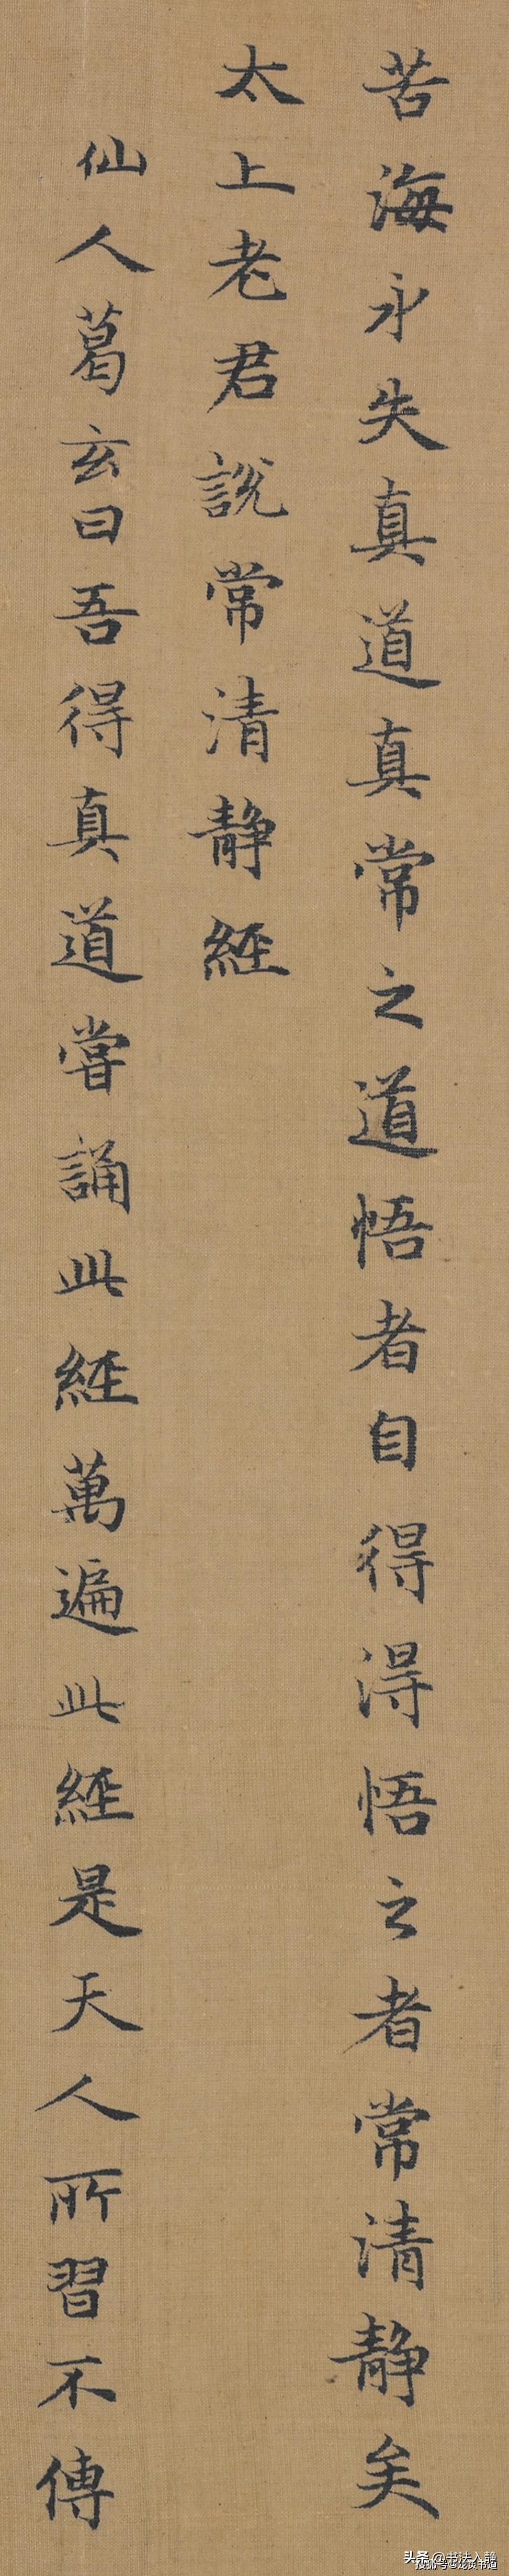 苦海永失真道真常之道悟者自得得悟之者常清靜矣
太上老君說常清靜經
仙人葛玄曰吾得真道嘗誦此經萬遍此經是天人所習不傳
头条@书法入静
搜狐号@龙贡书道